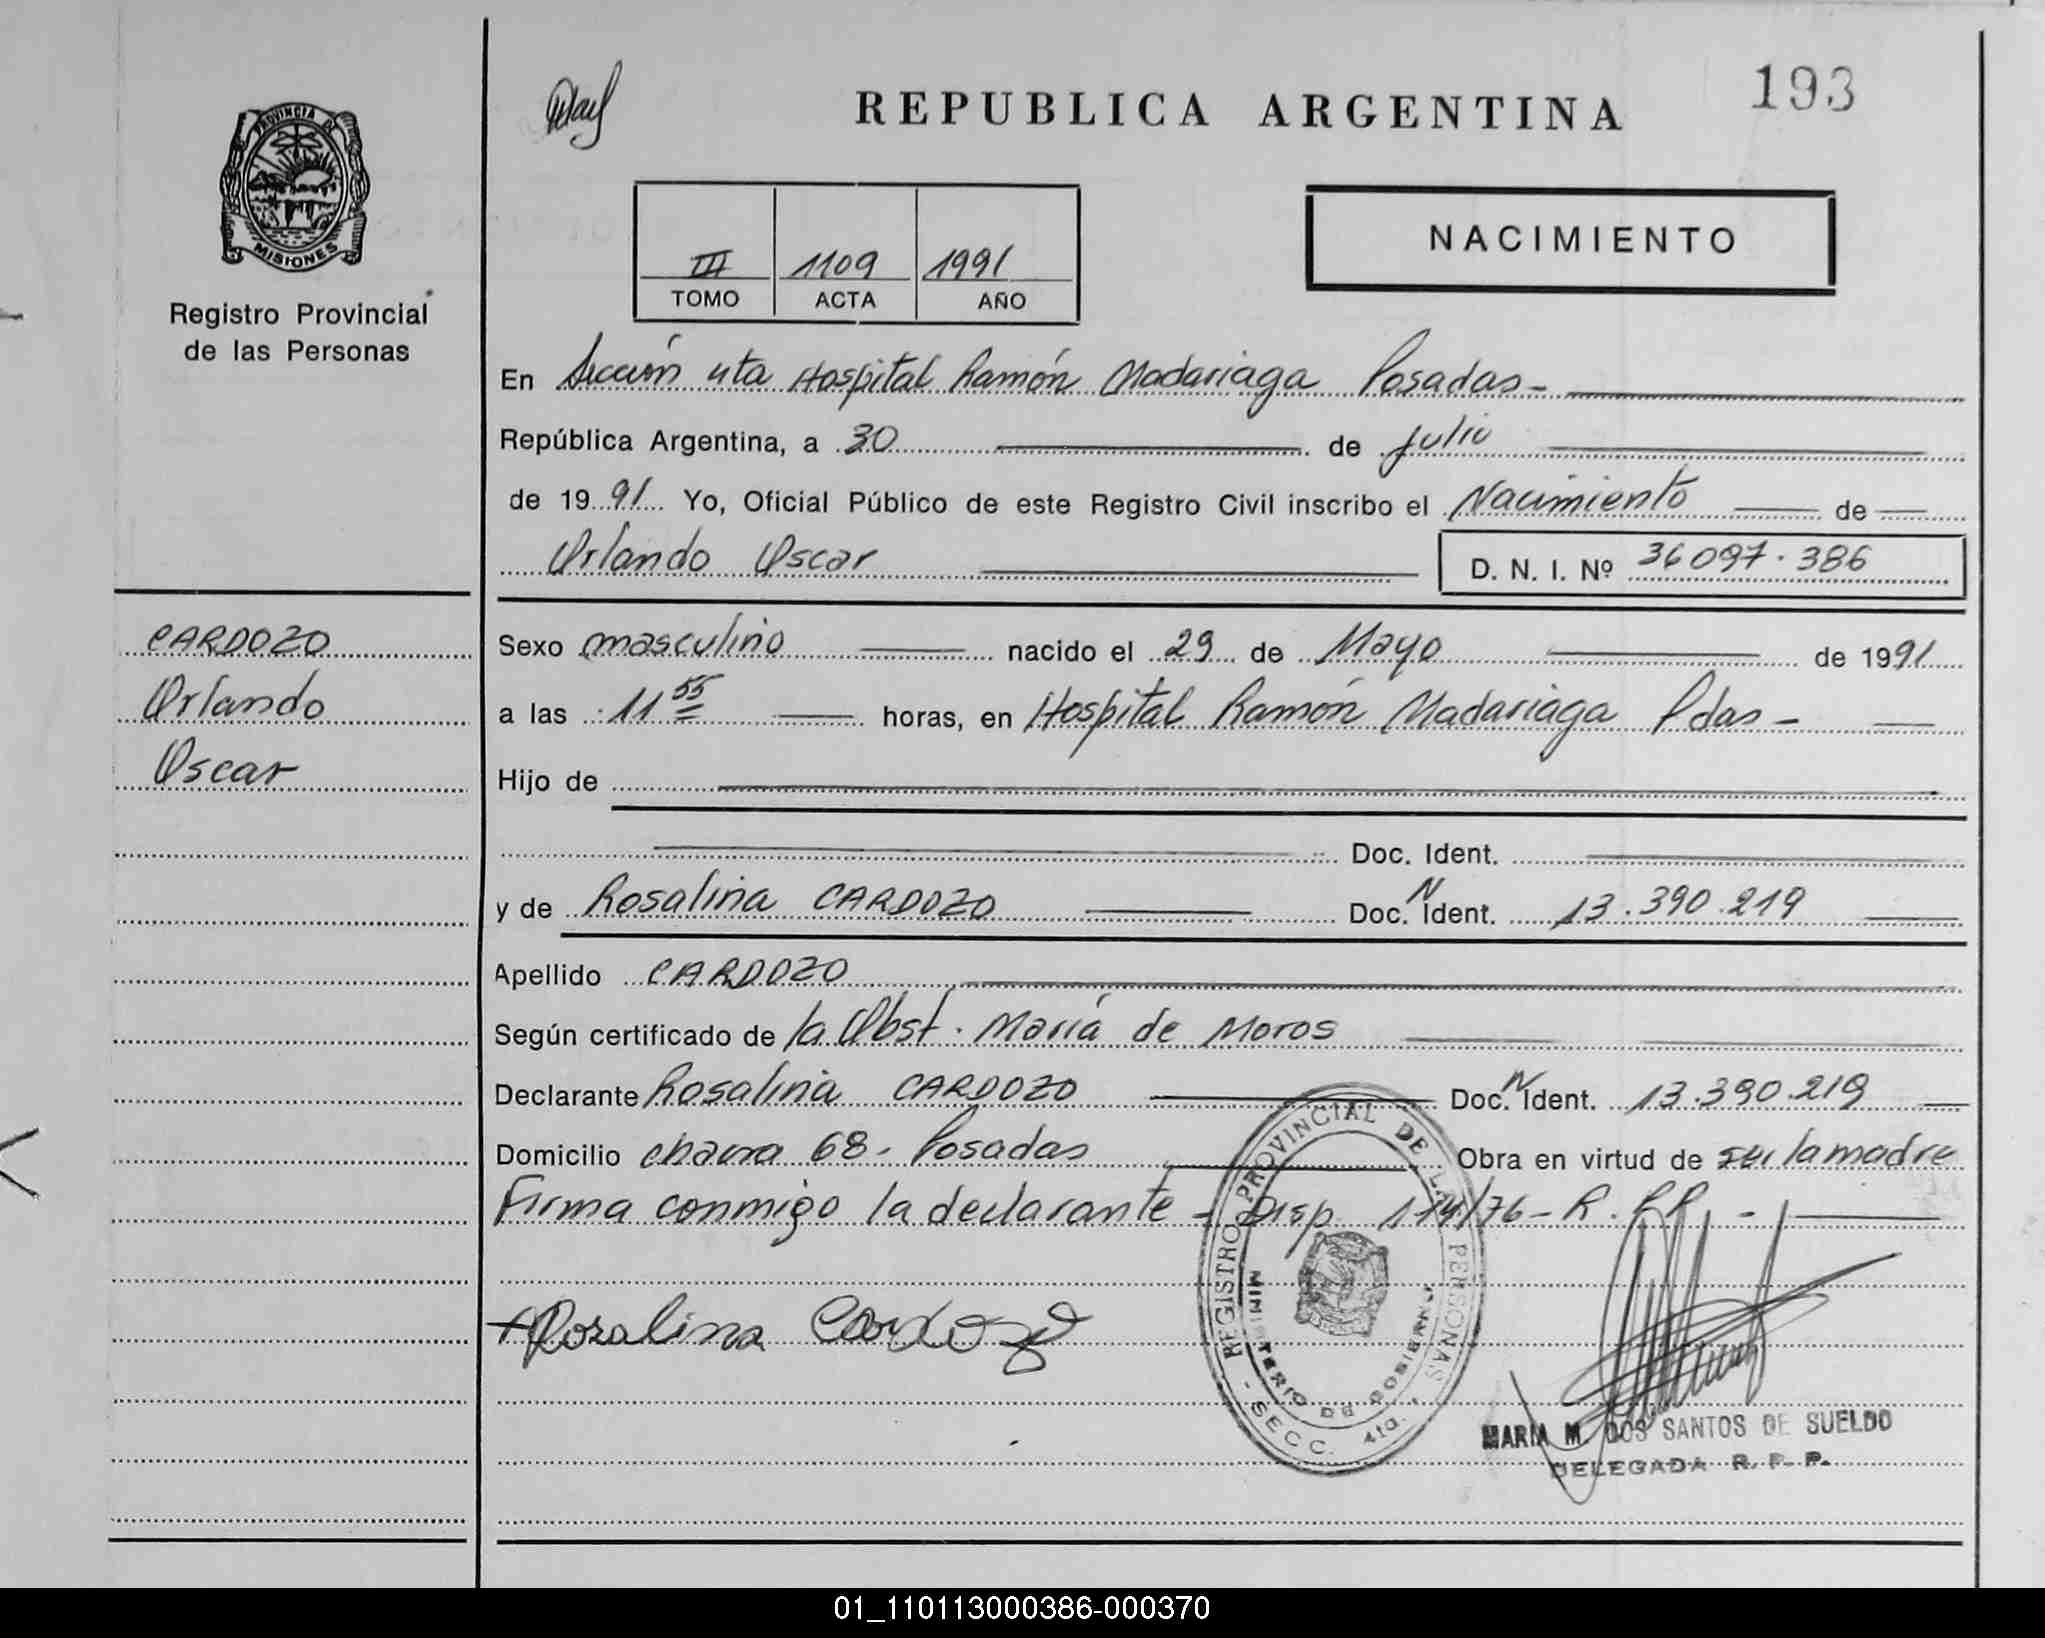 193
REPUBLICA ARGENTINA
PROVINCIA DE
MISIONES
Registro Provincial
de las Personas
III 1109 1991
TOMO ACTA AÑO
NACIMIENTO
En Sección 4ta Hospital Ramón Madariaga Posadas-
República Argentina, a 30 de Julio
de 1991 Yo, Oficial Público de este Registro Civil inscribo el Nacimiento de
Orlando Oscar D. N. I. Nº 36097.386
CARDOZO
Orlando
Oscar
Sexo masculino nacido el 29 de Mayo de 1991
a las 11 55 horas, en Hospital Ramón Madariaga Pdas-
Hijo de
Doc. Ident.
y de Rosalina CARDOZO Doc. N Ident. 13.390.219
Apellido CARDOZO
Según certificado de la Obst. María de Moros
Declarante Rosalina CARDOZO Doc. N Ident. 13.390.219
Domicilio chacra 68- Posadas Obra en virtud de ser la madre
Firma conmigo la declarante - Disp. 174/76- R.P.P. -
Rosalina Cardozo
REGISTRO PROVINCIAL DE LAS PERSONAS
MINISTERIO DE GOBIERNO
- SECC. 4ta. -
MARIA M. DOS SANTOS DE SUELDO
DELEGADA R. P. P.
01_110113000386-000370